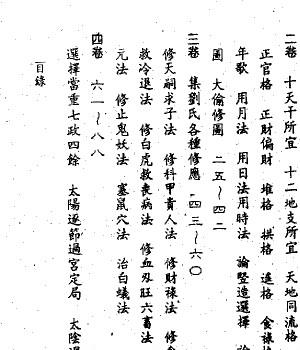 二卷　十天干所宜　十二地支所宜　天地同流格
正官格　正財偏財　堆格　拱格　遙格　食祿格
年歌　用月法　用日法用時法　論豎造選擇
圖　大偷修圖　二五～四二
三卷　集劉氏各種修應　四三～六〇
修天嗣求子法　修科甲貴人法　修財祿法
救冷退法　修白虎救喪病法　修血刃旺六畜法
元法　修止鬼妖法　塞鼠穴法　治白蟻法
四卷　六一～八八
選擇當重七政四餘　太陽逐節過宮定局　太陰
目錄